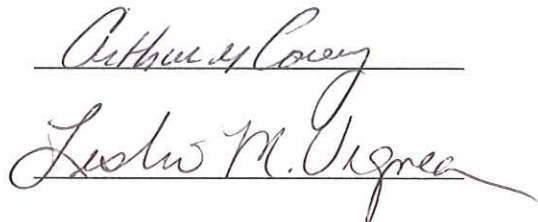 Arthur M Corey
Leslie M. Vigneau